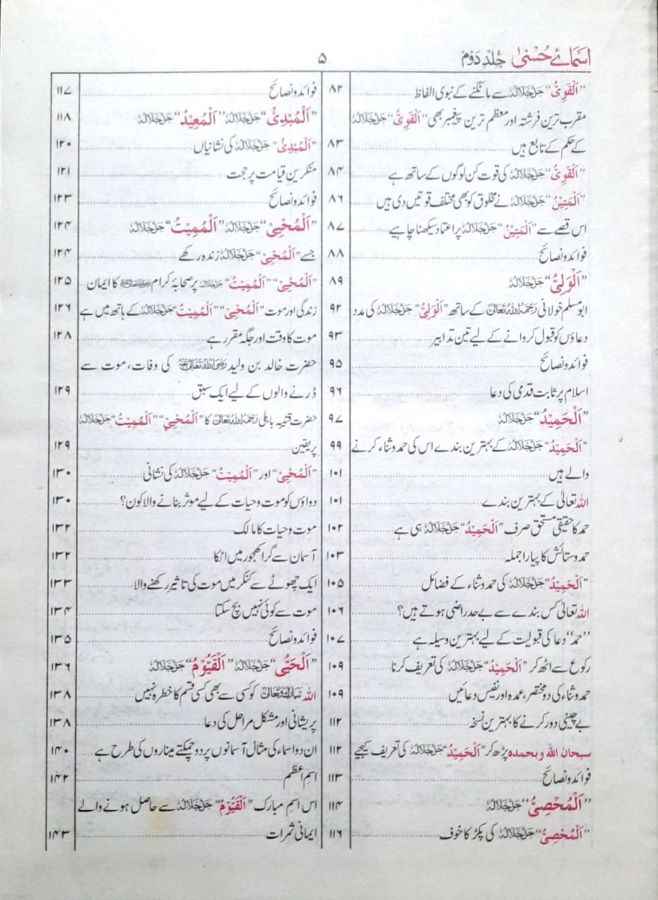 اسمائے حُسنیٰ جلد دوم
۵
"اَلْقَوِیُّ" جَلَّ جَلَالُہٗ سے مانگنے کے نبوی الفاظ ۸۲
مقرب ترین فرشتہ اور معظم ترین پیغمبر بھی "اَلْقَوِیُّ" جَلَّ جَلَالُہٗ
کے حکم کے تابع ہیں ۸۳
"اَلْقَوِیُّ" جَلَّ جَلَالُہٗ کی قوت کن لوگوں کے ساتھ ہے ۸۴
"اَلْمَتِیْنُ" جَلَّ جَلَالُہٗ نے مخلوق کو بھی مختلف قوتیں دی ہیں ۸۶
اس قصے سے "اَلْمَتِیْنُ" جَلَّ جَلَالُہٗ پر اعتماد سیکھنا چاہیے ۸۷
فوائد و نصائح ۸۸
"اَلْوَلِیُّ" جَلَّ جَلَالُہٗ ۸۹
ابو مسلم خولانی رَحِمَہُ اللّٰہُ تَعَالٰی کے ساتھ "اَلْوَلِیُّ" جَلَّ جَلَالُہٗ کی مدد ۹۲
دعاؤں کو قبول کروانے کے لیے تین تدابیر ۹۳
فوائد و نصائح ۹۵
اسلام پر ثابت قدمی کی دعا ۹۶
"اَلْحَمِیْدُ" جَلَّ جَلَالُہٗ ۹۷
"اَلْحَمِیْدُ" جَلَّ جَلَالُہٗ کے بہترین بندے اس کی حمد و ثناء کرنے ۹۹
والے ہیں ۱۰۱
اللہ تعالیٰ کے بہترین بندے ۱۰۱
حمد کا حقیقی مستحق صرف "اَلْحَمِیْدُ" جَلَّ جَلَالُہٗ ہی ہے ۱۰۲
حمد و ستائش کا پیارا جملہ ۱۰۳
"اَلْحَمِیْدُ" جَلَّ جَلَالُہٗ کی حمد و ثناء کے فضائل ۱۰۵
اللہ تعالیٰ کس بندے سے بے حد راضی ہوتے ہیں؟ ۱۰۶
"حمد" دعا کی قبولیت کے لیے بہترین وسیلہ ہے ۱۰۷
رکوع سے اٹھ کر "اَلْحَمِیْدُ" جَلَّ جَلَالُہٗ کی تعریف کرنا ۱۰۹
حمد و ثناء کی دو مختصر، عمدہ اور نفیس دعائیں ۱۰۹
بے چینی دور کرنے کا بہترین نسخہ ۱۱۲
سبحان اللہ و بحمدہ پڑھ کر "اَلْحَمِیْدُ" جَلَّ جَلَالُہٗ کی تعریف کیجیے ۱۱۲
فوائد و نصائح ۱۱۳
"اَلْمُحْصِیْ" جَلَّ جَلَالُہٗ ۱۱۴
"اَلْمُحْصِیْ" جَلَّ جَلَالُہٗ کی پکڑ کا خوف ۱۱۶
فوائد و نصائح ۱۱۷
"اَلْمُبْدِئُ" جَلَّ جَلَالُہٗ "اَلْمُعِیْدُ" جَلَّ جَلَالُہٗ ۱۱۸
"اَلْمُبْدِئُ" جَلَّ جَلَالُہٗ کی نشانیاں ۱۲۰
منکرین قیامت پر حجت ۱۲۱
فوائد و نصائح ۱۲۳
"اَلْمُحْیِیْ" جَلَّ جَلَالُہٗ "اَلْمُمِیْتُ" جَلَّ جَلَالُہٗ ۱۲۴
جسے "اَلْمُحْیِیْ" جَلَّ جَلَالُہٗ زندہ رکھے ۱۲۴
"اَلْمُحْیِیْ" "اَلْمُمِیْتُ" جَلَّ جَلَالُہٗ پر صحابہ کرام کا ایمان ۱۲۵
زندگی اور موت "اَلْمُحْیِیْ" "اَلْمُمِیْتُ" جَلَّ جَلَالُہٗ کے ہاتھ میں ہے ۱۲۶
موت کا وقت اور جگہ مقرر ہے ۱۲۸
حضرت خالد بن ولید رَضِیَ اللّٰہُ تَعَالٰی عَنْہُ کی وفات، موت سے
ڈرنے والوں کے لیے ایک سبق ۱۲۹
حضرت قتیبہ باہلی رَحِمَہُ اللّٰہُ تَعَالٰی کا "اَلْمُحْیِیْ" "اَلْمُمِیْتُ" جَلَّ جَلَالُہٗ
پر یقین ۱۲۹
"اَلْمُحْیِیْ" اور "اَلْمُمِیْتُ" جَلَّ جَلَالُہٗ کی نشانی ۱۳۰
دواؤں کو موت و حیات کے لیے موثر بنانے والا کون؟ ۱۳۰
موت و حیات کا مالک ۱۳۲
آسمان سے گرا کھجور میں اٹکا ۱۳۲
ایک چھوٹے سے کنکر میں موت کی تاثیر رکھنے والا ۱۳۳
موت سے کوئی نہیں بچ سکتا ۱۳۴
فوائد و نصائح ۱۳۵
"اَلْحَیُّ" جَلَّ جَلَالُہٗ "اَلْقَیُّوْمُ" جَلَّ جَلَالُہٗ ۱۳۶
اللہ تَبَارَکَ وَتَعَالٰی کو کسی سے بھی کسی قسم کا خطرہ نہیں ۱۳۸
پریشانی اور مشکل مراحل کی دعا ۱۳۸
ان دو اسماء کی مثال آسمانوں پر دو چمکتے میناروں کی طرح ہے ۱۴۰
اسم اعظم ۱۴۲
اس اسم مبارک "اَلْقَیُّوْمُ" جَلَّ جَلَالُہٗ سے حاصل ہونے والے
ایمانی ثمرات ۱۴۳